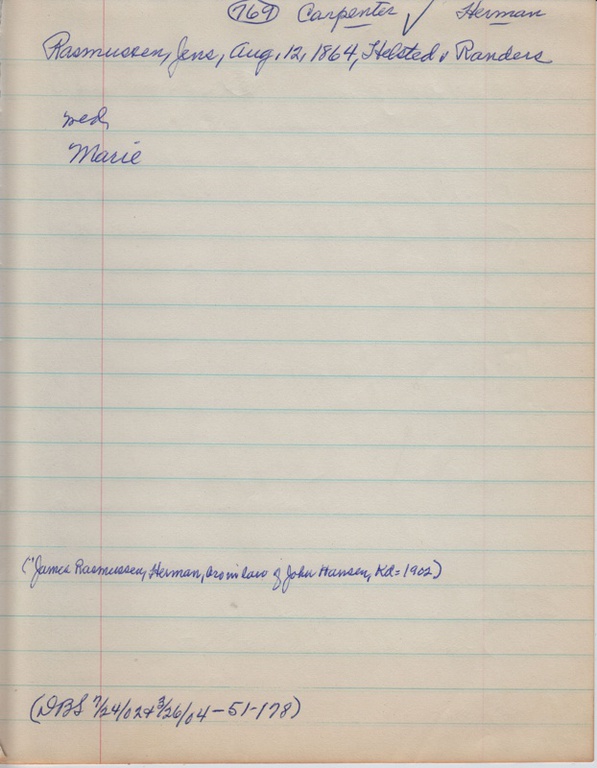 769 Carpenter ✓ Herman
Rasmussen, Jens, Aug. 12, 1864, Helsted v Randers
wed,
Marie
("James Rasmussen, Herman, bro in law of John Hansen, Kd = 1902)
(DBS 7/24/02 + 3/26/04 - 51-178)